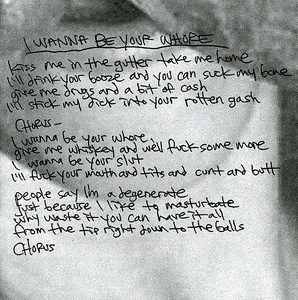 I WANNA BE YOUR WHORE
Kiss me in the gutter take me home
I'll drink your booze and you can suck my bone
give me drugs and a bit of cash
I'll stick my dick into your rotten gash
CHORUS-
I wanna be your whore,
give me whiskey and we'll fuck some more
I wanna be your slut
I'll fuck your mouth and tits and cunt and butt
people say I'm a degenerate
just because I like to masturbate
why waste it you can have it all
from the tip right down to the balls
CHORUS